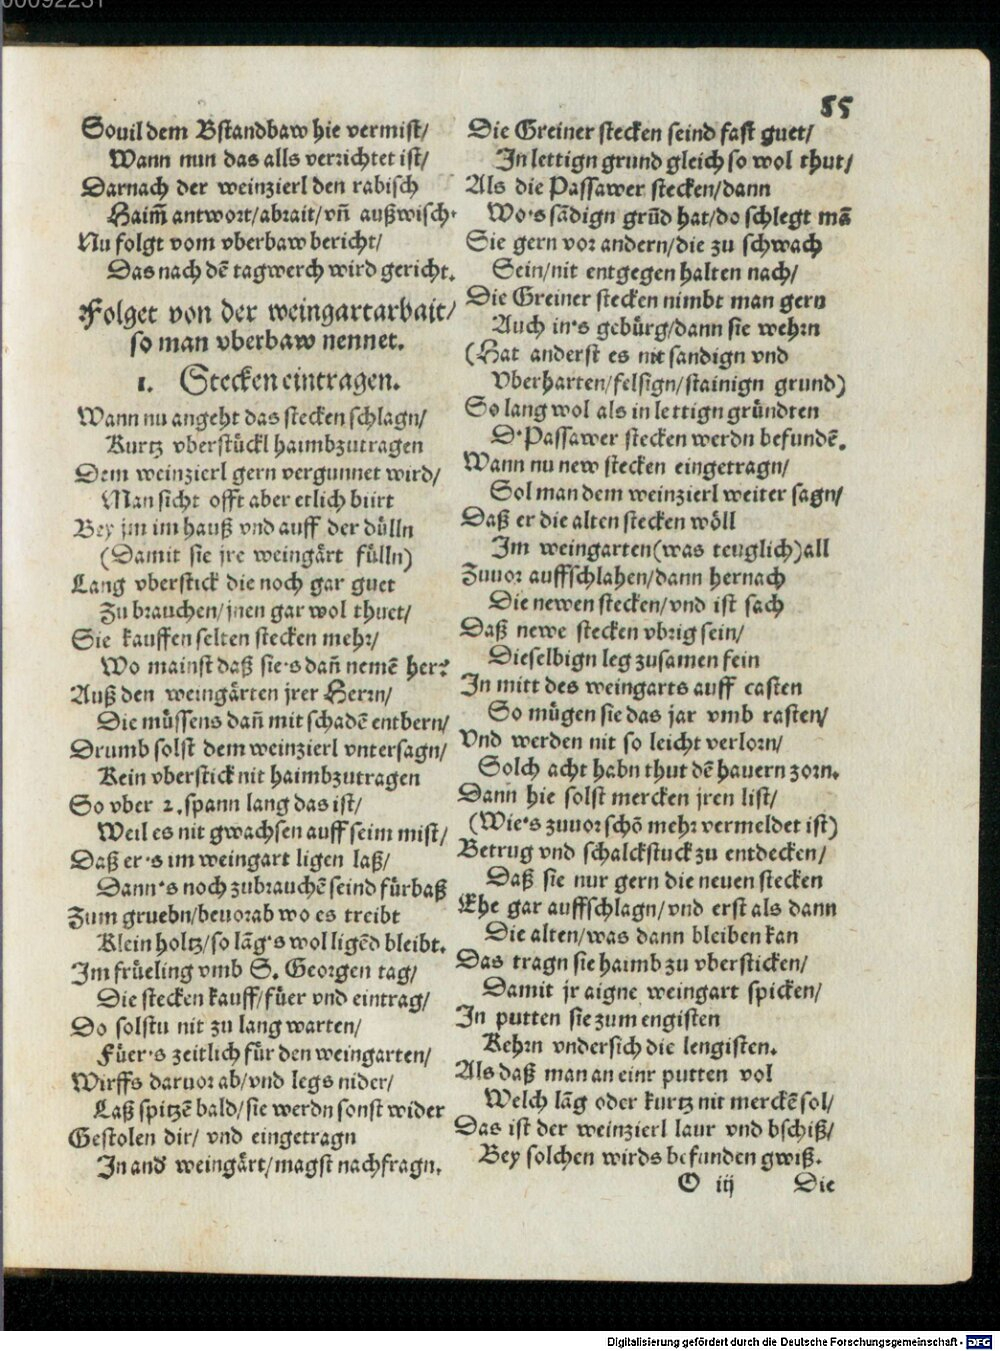 85
Souil dem Bstandbaw hie vermist/
Wann nun das alls verrichtet ist/
Darnach der weinzierl den rabisch
Haim̃ antwort/abrait/vñ außwisch.
Nu folgt vom vberbaw bericht/
Das nach dẽ tagwerch wird gericht.
Folget von der weingartarbait/
so man vberbaw nennet.
1. Stecken eintragen.
Wann nu angeht das stecken schlagn/
Kurtz vberstückl haimbzutragen
Dem weinzierl gern vergunnet wird/
Man sicht offt aber etlich būrt
Bey jm im hauß vnd auff der dülln
(Damit sie jre weingärt fülln)
Lang vberstick die noch gar guet
Zu brauchen/jnen gar wol thuet/
Sie kauffen selten stecken mehr/
Wo mainst daß sie's dañ nemẽ her?
Auß den weingärten jrer Herrn/
Die müssens dañ mit schadẽ entbern/
Drumb solst dem weinzierl vntersagn/
Kein vberstick nit haimbzutragen
So vber 2. spann lang das ist/
Weil es nit gwachsen auff seim mist/
Daß er's im weingart ligen laß/
Dann's noch zubrauchẽ seind fürbaß
Zum gruebn/beuorab wo es treibt
Klein holtz/so lãg's wol ligẽd bleibt.
Im früeling vmb S. Georgen tag/
Die stecken kauff/füer vnd eintrag/
Do solstu nit zu lang warten/
Füer's zeitlich für den weingarten/
Wirffs daruor ab/vnd legs nider/
Laß spitzẽ bald/sie werdn sonst wider
Gestolen dir/ vnd eingetragn
In and' weingärt/magst nachfragn.
Die Greiner stecken seind fast guet/
In lettign grund gleich so wol thut/
Als die Passawer stecken/dann
Wo's sãdign grũd hat/do schlegt mã
Sie gern vor andern/die zu schwach
Sein/nit entgegen halten nach/
Die Greiner stecken nimbt man gern
Auch in's gebürg/dann sie wehrn
(Hat anderst es nit sandign vnd
Vberharten/felsign/stainign grund)
So lang wol als in lettign gründten
D'Passawer stecken werdn befundẽ.
Wann nu new stecken eingetragn/
Sol man dem weinzierl weiter sagn/
Daß er die alten stecken wöll
Im weingarten(was teuglich)all
Zuuor auffschlahen/dann hernach
Die newen stecken/vnd ist sach
Daß newe stecken vbrig sein/
Dieselbign leg zusamen fein
In mitt des weingarts auff casten
So mügen sie das jar vmb rasten/
Vnd werden nit so leicht verlorn/
Solch acht habn thut dẽ hauern zorn.
Dann hie solst mercken jren list/
(Wie's zuuor schõ mehr vermeldet ist)
Betrug vnd schalckstuck zu entdecken/
Daß sie nur gern die neuen stecken
Ehe gar auffschlagn/vnd erst als dann
Die alten/was dann bleiben kan
Das tragn sie haimb zu vbersticken/
Damit jr aigne weingart spicken/
In putten sie zum engisten
Kehrn vndersich die lengisten.
Als daß man an einr putten vol
Welch lãg oder kurtz nit merckẽ sol/
Das ist der weinzierl laur vnd bschiß/
Bey solchen wirds befunden gwiß.
O iij Die
Digitalisierung gefördert durch die Deutsche Forschungsgemeinschaft - DFG